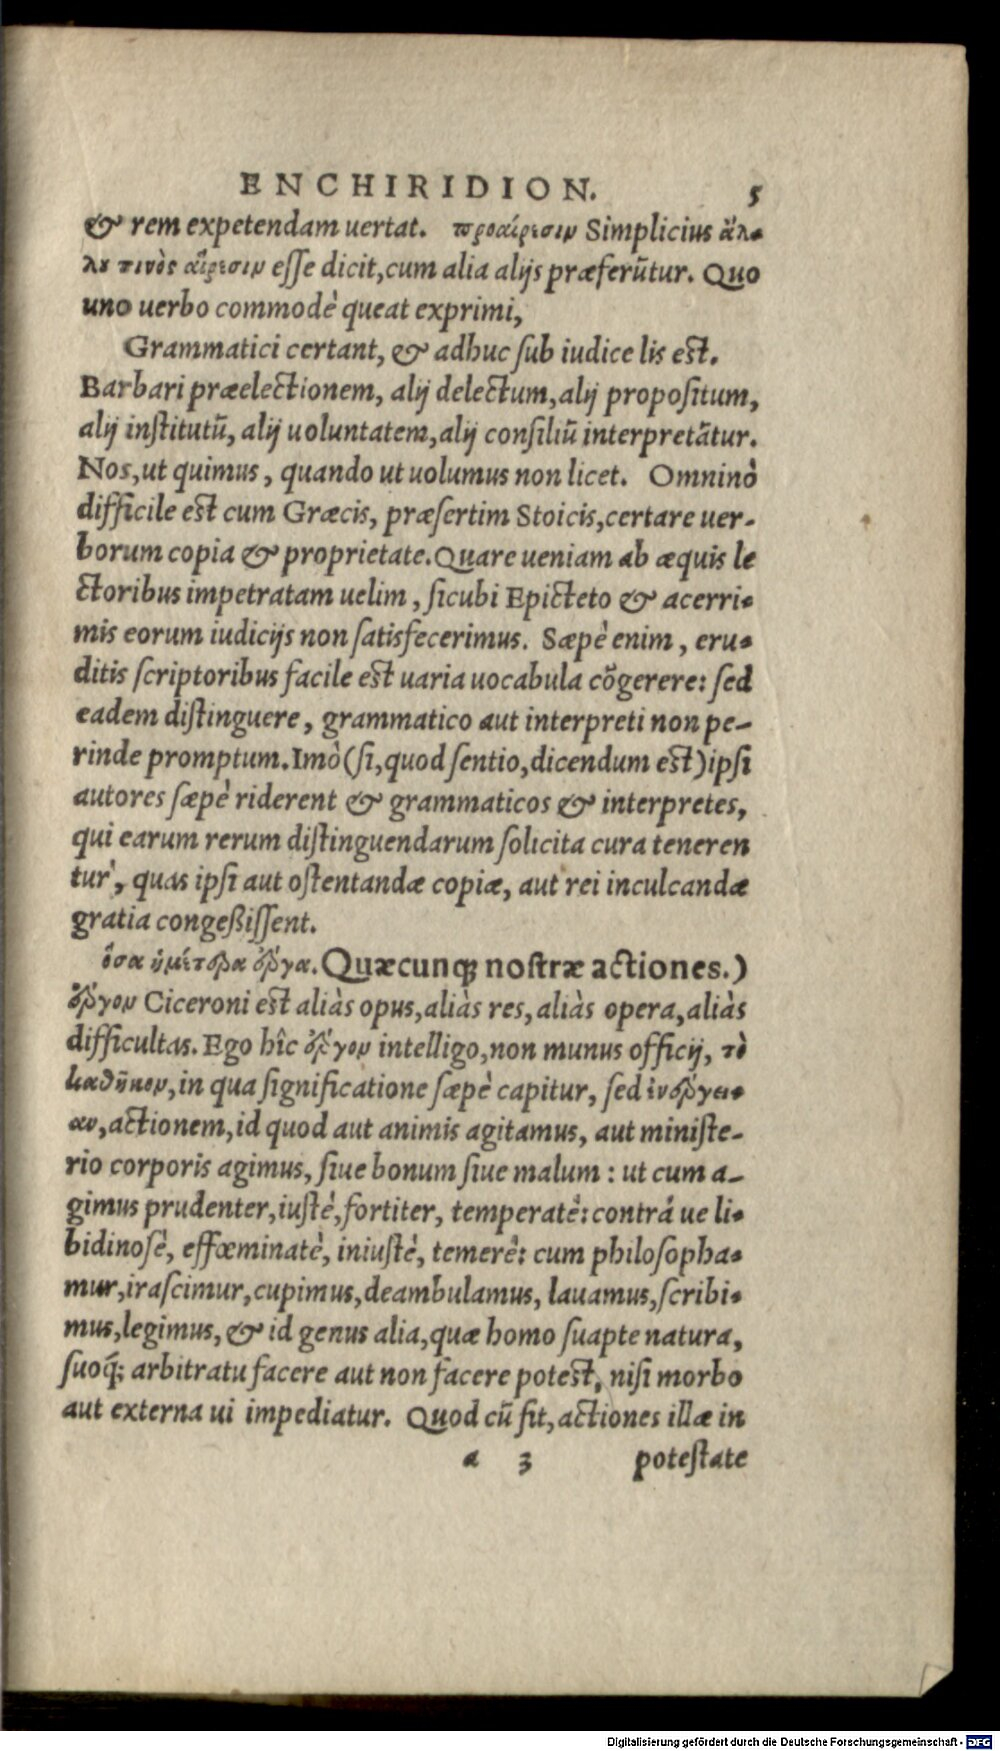 ENCHIRIDION. 5
& rem expetendam uertat. προαίρεσιν Simplicius ἄλ-
λου τινὸς αἵρεσιν esse dicit, cum alia alijs præferūtur. Quo
uno uerbo commodè queat exprimi,
Grammatici certant, & adhuc sub iudice lis est.
Barbari præelectionem, alij delectum, alij propositum,
alij institutū, alij uoluntatem, alij consiliū interpretātur.
Nos, ut quimus, quando ut uolumus non licet. Omninò
difficile est cum Græcis, præsertim Stoicis, certare uer-
borum copia & proprietate. Quare ueniam ab æquis le
ctoribus impetratam uelim, sicubi Epicteto & acerri-
mis eorum iudicijs non satisfecerimus. Sæpè enim, eru-
ditis scriptoribus facile est uaria uocabula cõgerere: sed
eadem distinguere, grammatico aut interpreti non pe-
rinde promptum. Imò (si, quod sentio, dicendum est) ipsi
autores sæpè riderent & grammaticos & interpretes,
qui earum rerum distinguendarum solicita cura teneren
tur, quas ipsi aut ostentandæ copiæ, aut rei inculcandæ
gratia congeßissent.
ὅσα ἡμέτερα ἔργα. Quæcunq; nostræ actiones.)
ἔργον Ciceroni est aliàs opus, aliàs res, aliàs opera, aliàs
difficultas. Ego hîc ἔργον intelligo, non munus officij, τὸ
καθῆκον, in qua significatione sæpè capitur, sed ἐνέργει-
αν, actionem, id quod aut animis agitamus, aut ministe-
rio corporis agimus, siue bonum siue malum: ut cum a-
gimus prudenter, iustè, fortiter, temperatè: contrá ue li-
bidinosè, effœminatè, iniustè, temerè: cum philosopha-
mur, irascimur, cupimus, deambulamus, lauamus, scribi-
mus, legimus, & id genus alia, quæ homo suapte natura,
suoq́; arbitratu facere aut non facere potest, nisi morbo
aut externa ui impediatur. Quod cū fit, actiones illæ in
a 3 potestate
Digitalisierung gefördert durch die Deutsche Forschungsgemeinschaft - DFG